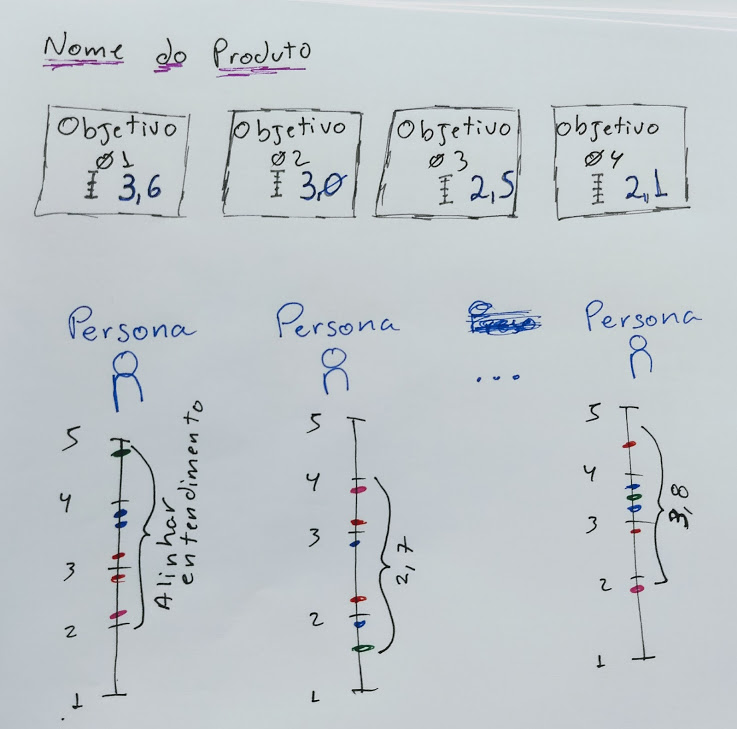 Nome do Produto
Objetivo Objetivo Objetivo Objetivo
Ø1 Ø2 Ø3 Ø4
3,6 3,Ø 2,5 2,1
Persona Persona Persona
...
Alinhar
entendimento
5
4
3
2
1
2,7
5
4
3
2
1
3,8
5
4
3
2
1